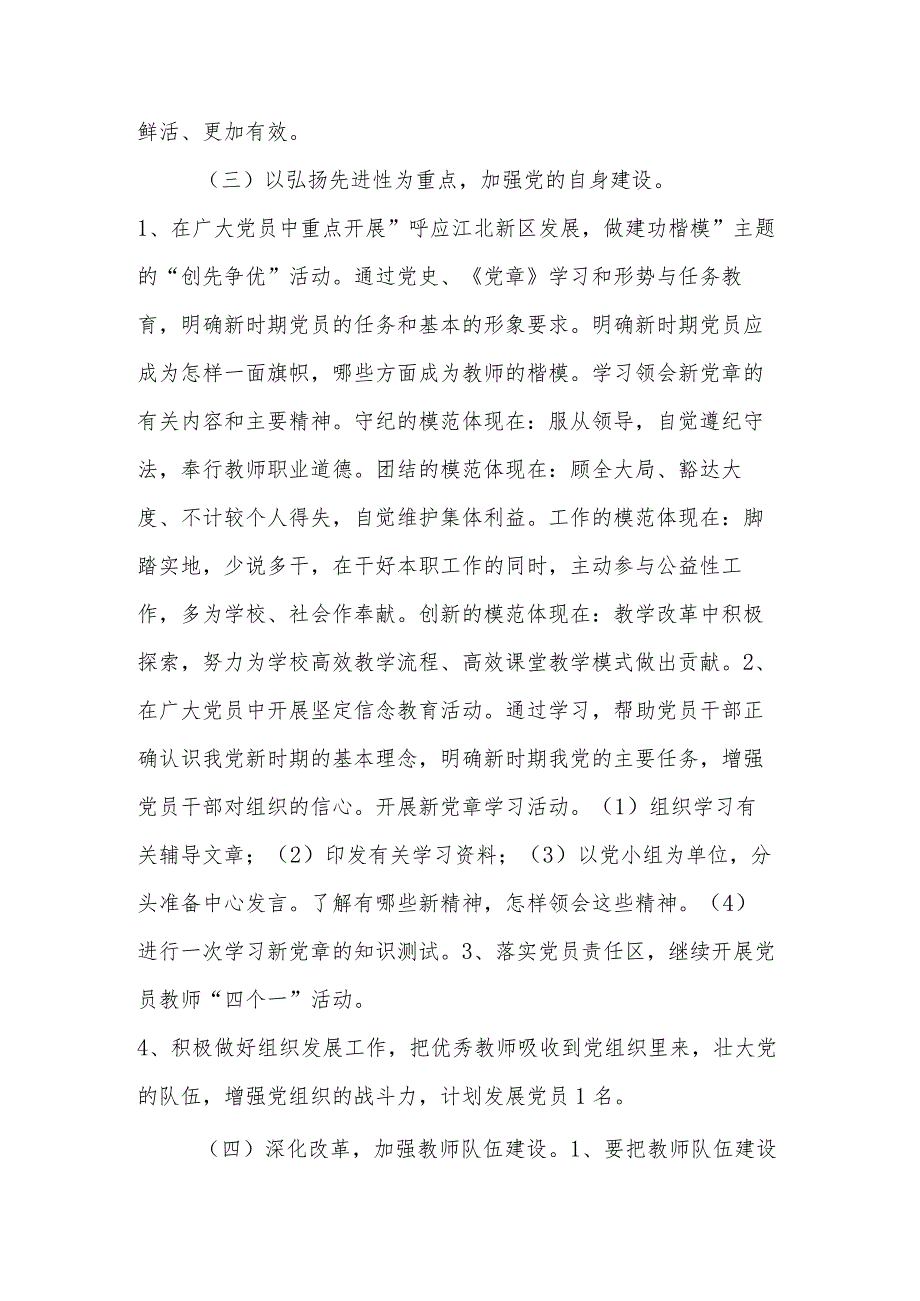 鲜活、更加有效。
（三）以弘扬先进性为重点，加强党的自身建设。
1、在广大党员中重点开展”呼应江北新区发展，做建功楷模”主题
的“创先争优”活动。通过党史、《党章》学习和形势与任务教
育，明确新时期党员的任务和基本的形象要求。明确新时期党员应
成为怎样一面旗帜，哪些方面成为教师的楷模。学习领会新党章的
有关内容和主要精神。守纪的模范体现在：服从领导，自觉遵纪守
法，奉行教师职业道德。团结的模范体现在：顾全大局、豁达大
度、不计较个人得失，自觉维护集体利益。工作的模范体现在：脚
踏实地，少说多干，在干好本职工作的同时，主动参与公益性工
作，多为学校、社会作奉献。创新的模范体现在：教学改革中积极
探索，努力为学校高效教学流程、高效课堂教学模式做出贡献。2、
在广大党员中开展坚定信念教育活动。通过学习，帮助党员干部正
确认识我党新时期的基本理念，明确新时期我党的主要任务，增强
党员干部对组织的信心。开展新党章学习活动。（1）组织学习有
关辅导文章；（2）印发有关学习资料；（3）以党小组为单位，分
头准备中心发言。了解有哪些新精神，怎样领会这些精神。（4）
进行一次学习新党章的知识测试。3、落实党员责任区，继续开展党
员教师“四个一”活动。
4、积极做好组织发展工作，把优秀教师吸收到党组织里来，壮大党
的队伍，增强党组织的战斗力，计划发展党员1名。
（四）深化改革，加强教师队伍建设。1、要把教师队伍建设